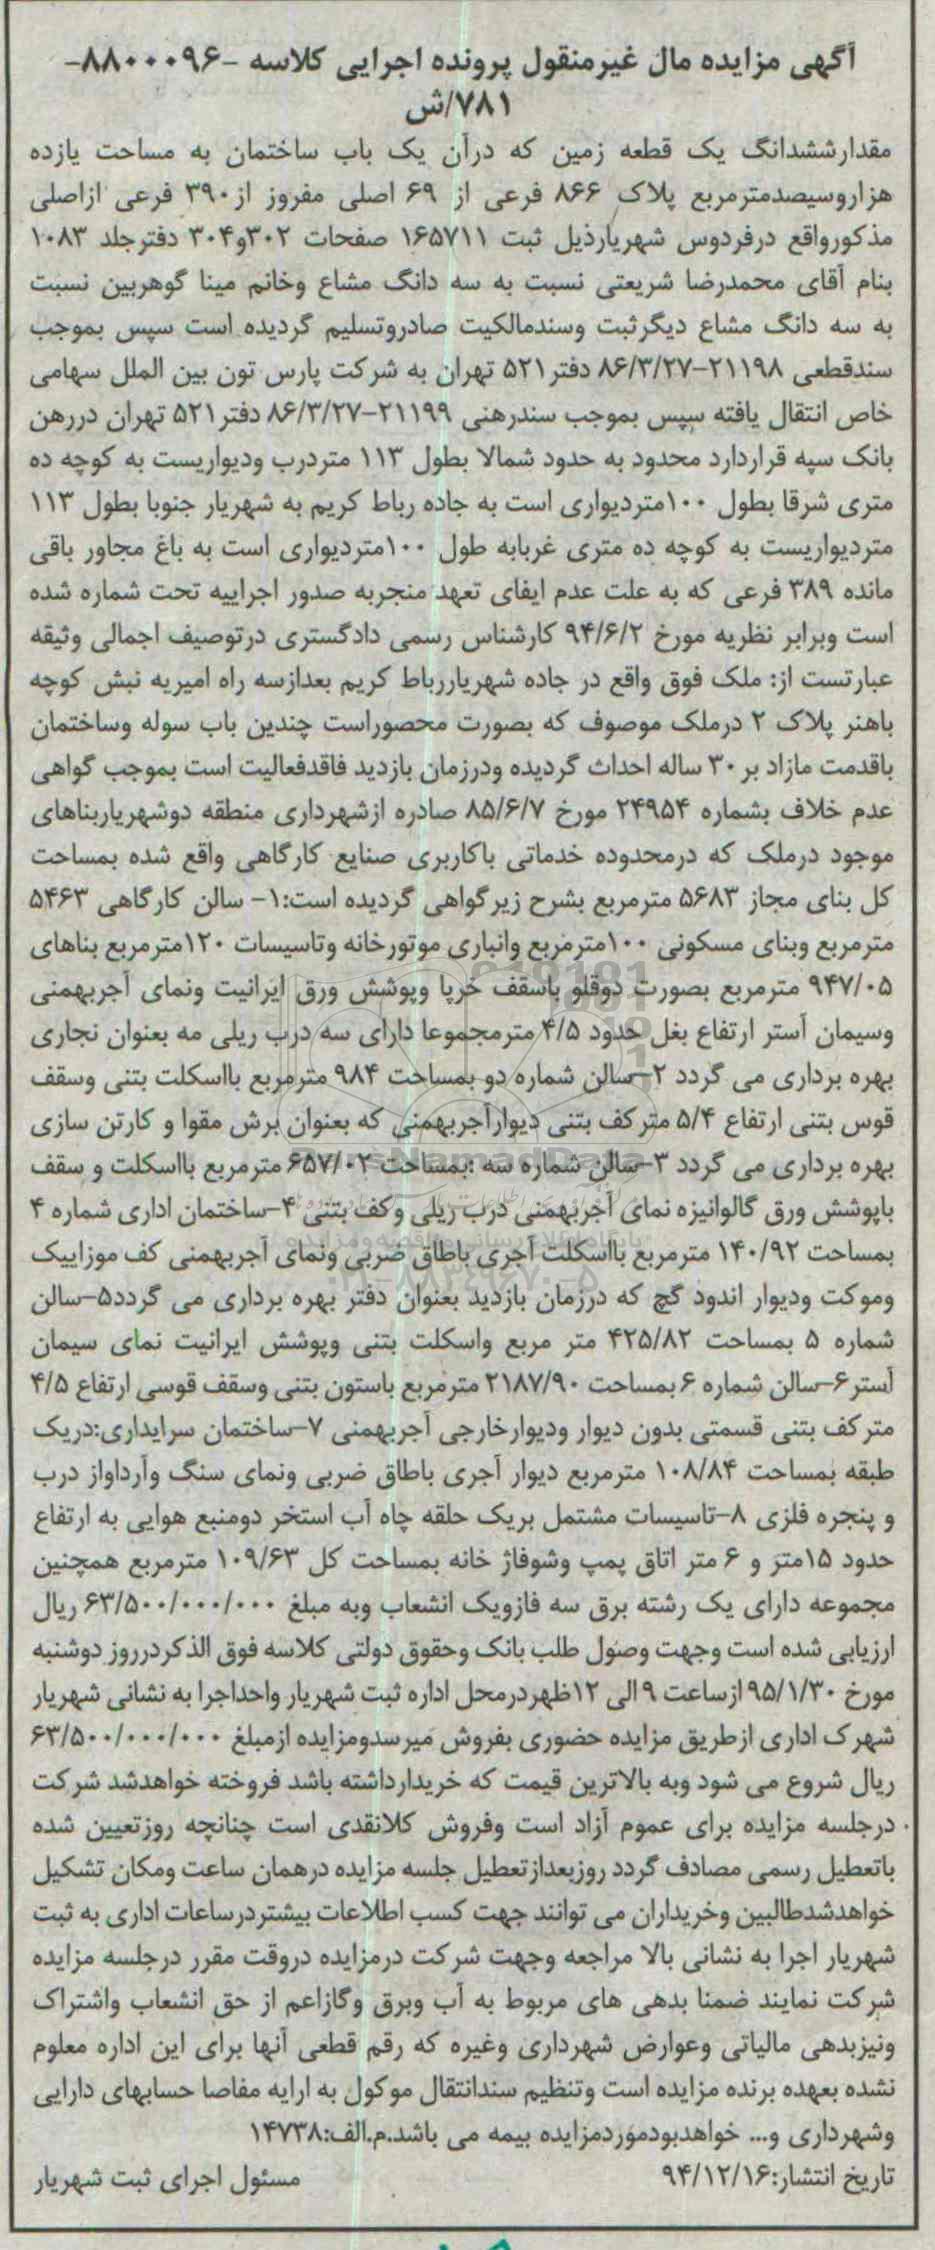 آگهی مزایده مال غیرمنقول پرونده اجرایی کلاسه -۸۸۰۰۰۹۶-
۷۸۱/ش
مقدارششدانگ یک قطعه زمین که درآن یک باب ساختمان به مساحت یازده
هزاروسیصدمترمربع پلاک ۸۶۶ فرعی از ۶۹ اصلی مفروز از۳۹۰ فرعی ازاصلی
مذکورواقع درفردوس شهریارذیل ثبت ۱۶۵۷۱۱ صفحات ۳۰۲و۳۰۴ دفترجلد ۱۰۸۳
بنام آقای محمدرضا شریعتی نسبت به سه دانگ مشاع وخانم مینا گوهربین نسبت
به سه دانگ مشاع دیگرثبت وسندمالکیت صادروتسلیم گردیده است سپس بموجب
سندقطعی ۲۱۱۹۸-۸۶/۳/۲۷ دفتر۵۲۱ تهران به شرکت پارس تون بین الملل سهامی
خاص انتقال یافته سپس بموجب سندرهنی ۲۱۱۹۹-۸۶/۳/۲۷ دفتر۵۲۱ تهران دررهن
بانک سپه قراردارد محدود به حدود شمالا بطول ۱۱۳ متردرب ودیواریست به کوچه ده
متری شرقا بطول ۱۰۰متردیواری است به جاده رباط کریم به شهریار جنوبا بطول ۱۱۳
متردیواریست به کوچه ده متری غربابه طول ۱۰۰متردیواری است به باغ مجاور باقی
مانده ۳۸۹ فرعی که به علت عدم ایفای تعهد منجربه صدور اجراییه تحت شماره شده
است وبرابر نظریه مورخ ۹۴/۶/۲ کارشناس رسمی دادگستری درتوصیف اجمالی وثیقه
عبارتست از: ملک فوق واقع در جاده شهریاررباط کریم بعدازسه راه امیریه نبش کوچه
باهنر پلاک ۲ درملک موصوف که بصورت محصوراست چندین باب سوله وساختمان
باقدمت مازاد بر۳۰ ساله احداث گردیده ودرزمان بازدید فاقدفعالیت است بموجب گواهی
عدم خلاف بشماره ۲۴۹۵۴ مورخ ۸۵/۶/۷ صادره ازشهرداری منطقه دوشهریاربناهای
موجود درملک که درمحدوده خدماتی باکاربری صنایع کارگاهی واقع شده بمساحت
کل بنای مجاز ۵۶۸۳ مترمربع بشرح زیرگواهی گردیده است:۱- سالن کارگاهی ۵۴۶۳
مترمربع وبنای مسکونی ۱۰۰مترمربع وانباری موتورخانه وتاسیسات ۱۲۰مترمربع بناهای
۹۴۷/۰۵ مترمربع بصورت دوقلو باسقف خرپا وپوشش ورق ایرانیت ونمای آجربهمنی
وسیمان آستر ارتفاع بغل حدود ۴/۵ مترمجموعا دارای سه درب ریلی مه بعنوان نجاری
بهره برداری می گردد ۲-سالن شماره دو بمساحت ۹۸۴ مترمربع بااسکلت بتنی وسقف
قوس بتنی ارتفاع ۵/۴ مترکف بتنی دیوارآجربهمنی که بعنوان برش مقوا و کارتن سازی
بهره برداری می گردد ۳-سالن شماره سه :بمساحت ۶۵۷/۰۲ مترمربع بااسکلت و سقف
باپوشش ورق گالوانیزه نمای آجربهمنی درب ریلی وکف بتنی ۴-ساختمان اداری شماره ۴
بمساحت ۱۴۰/۹۲ مترمربع بااسکلت آجری باطاق ضربی ونمای آجربهمنی کف موزاییک
وموکت ودیوار اندود گچ که درزمان بازدید بعنوان دفتر بهره برداری می گردد۵-سالن
شماره ۵ بمساحت ۴۲۵/۸۲ متر مربع واسکلت بتنی وپوشش ایرانیت نمای سیمان
آستر۶-سالن شماره ۶ بمساحت ۲۱۸۷/۹۰ مترمربع باستون بتنی وسقف قوسی ارتفاع ۴/۵
مترکف بتنی قسمتی بدون دیوار ودیوارخارجی آجربهمنی ۷-ساختمان سرایداری:دریک
طبقه بمساحت ۱۰۸/۸۴ مترمربع دیوار آجری باطاق ضربی ونمای سنگ وآرداواز درب
و پنجره فلزی ۸-تاسیسات مشتمل بریک حلقه چاه آب استخر دومنبع هوایی به ارتفاع
حدود ۱۵متر و ۶ متر اتاق پمپ وشوفاژ خانه بمساحت کل ۱۰۹/۶۳ مترمربع همچنین
مجموعه دارای یک رشته برق سه فازویک انشعاب وبه مبلغ ۶۳/۵۰۰/۰۰۰/۰۰۰ ریال
ارزیابی شده است وجهت وصول طلب بانک وحقوق دولتی کلاسه فوق الذکردرروز دوشنبه
مورخ ۹۵/۱/۳۰ ازساعت ۹ الی ۱۲ظهردرمحل اداره ثبت شهریار واحداجرا به نشانی شهریار
شهرک اداری ازطریق مزایده حضوری بفروش میرسدومزایده ازمبلغ ۶۳/۵۰۰/۰۰۰/۰۰۰
ریال شروع می شود وبه بالاترین قیمت که خریدارداشته باشد فروخته خواهدشد شرکت
درجلسه مزایده برای عموم آزاد است وفروش کلانقدی است چنانچه روزتعیین شده
باتعطیل رسمی مصادف گردد روزبعدازتعطیل جلسه مزایده درهمان ساعت ومکان تشکیل
خواهدشدطالبین وخریداران می توانند جهت کسب اطلاعات بیشتردرساعات اداری به ثبت
شهریار اجرا به نشانی بالا مراجعه وجهت شرکت درمزایده دروقت مقرر درجلسه مزایده
شرکت نمایند ضمنا بدهی های مربوط به آب وبرق وگازاعم از حق انشعاب واشتراک
ونیزبدهی مالیاتی وعوارض شهرداری وغیره که رقم قطعی آنها برای این اداره معلوم
نشده بعهده برنده مزایده است وتنظیم سندانتقال موکول به ارایه مفاصا حسابهای دارایی
وشهرداری و... خواهدبودموردمزایده بیمه می باشد.م.الف:۱۴۷۳۸
تاریخ انتشار:۹۴/۱۲/۱۶ مسئول اجرای ثبت شهریار